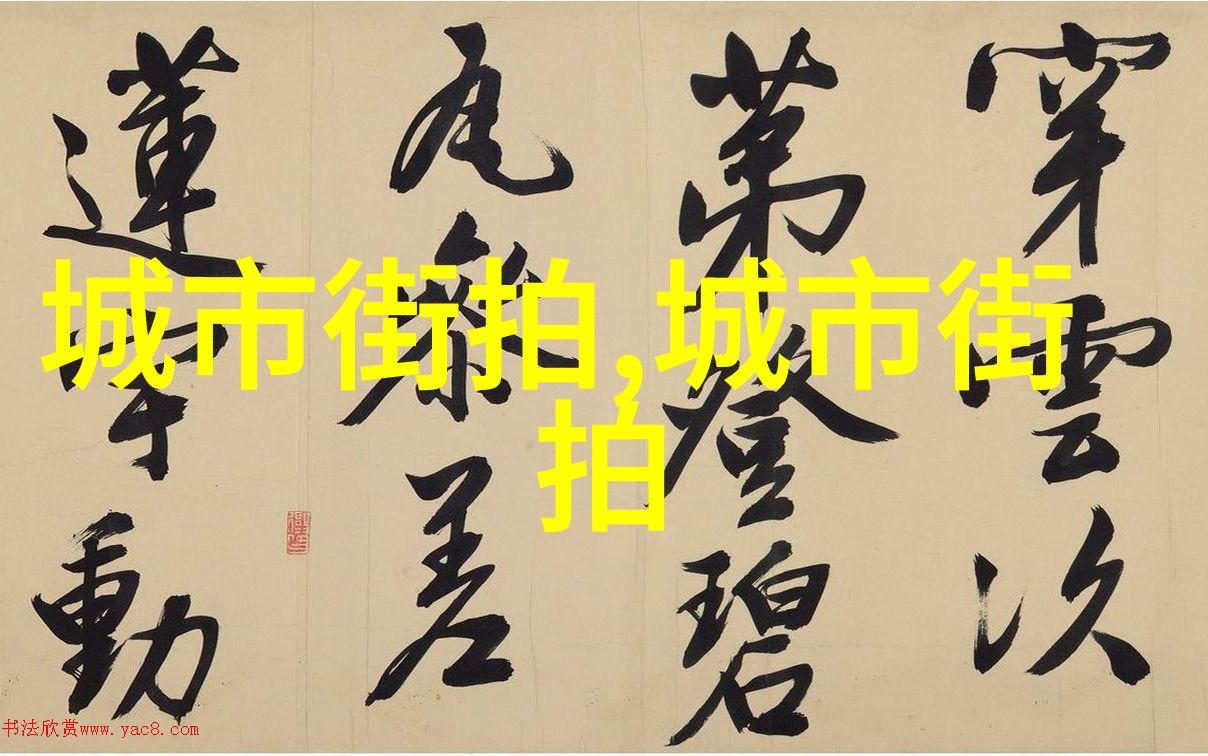 穿雲次
第登碧
瓦參差
蓮宇動
城市街拍,城市街
拍
书法欣赏www.yac8.com